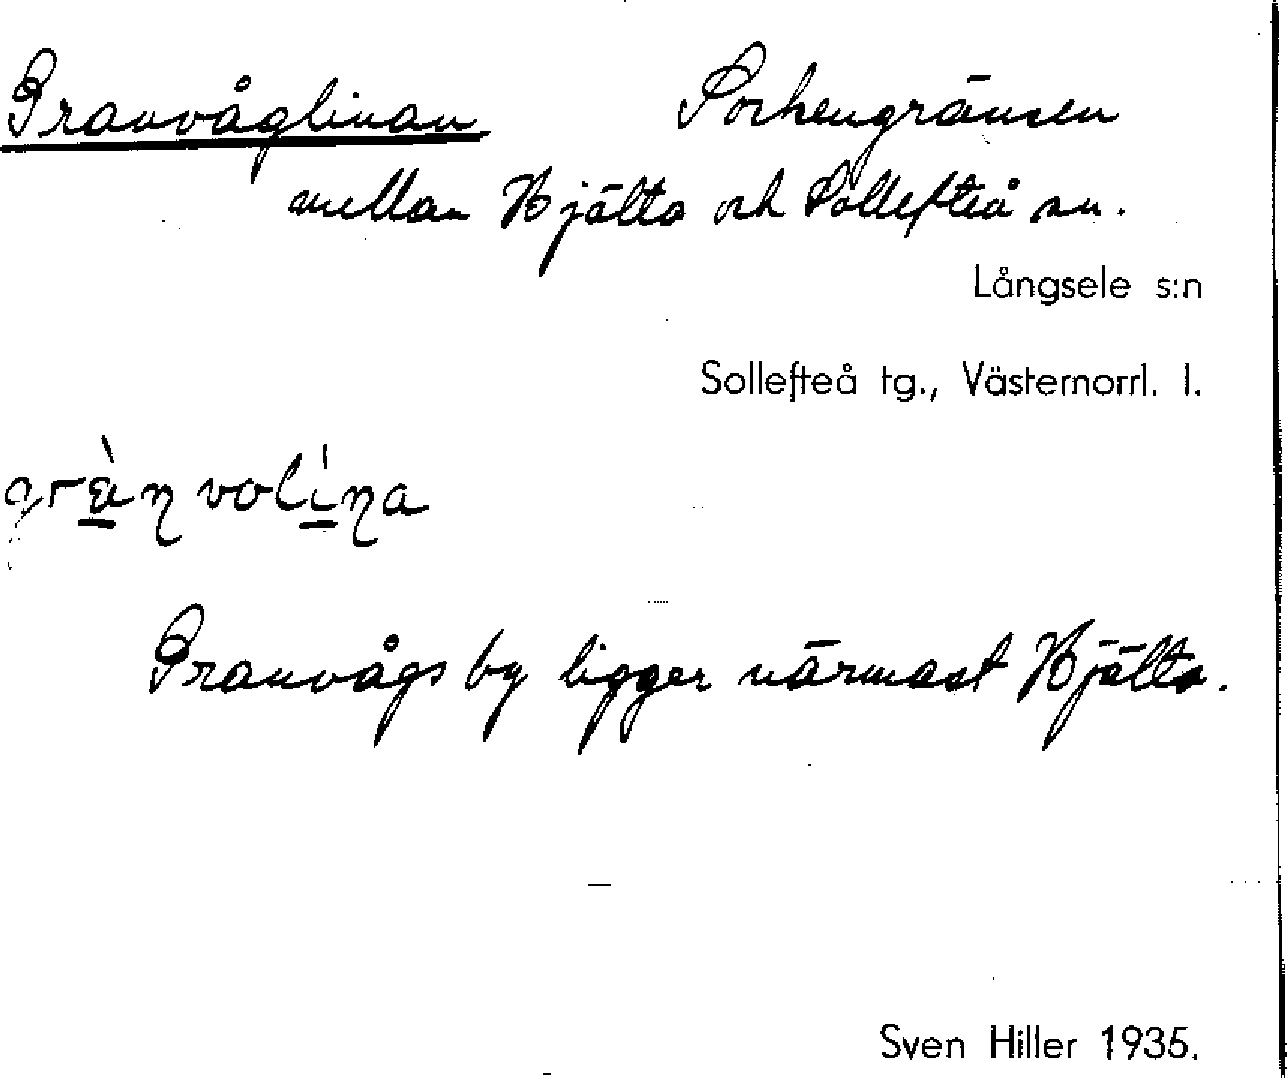 Granvåglinan Sockengränsen
mellan Hjälta och Sollefteå sn.
Långsele s:n
Sollefteå tg., Västernorrl. l.
grànvolína
Granvågs by ligger närmast Hjälta.
Sven Hiller 1935.